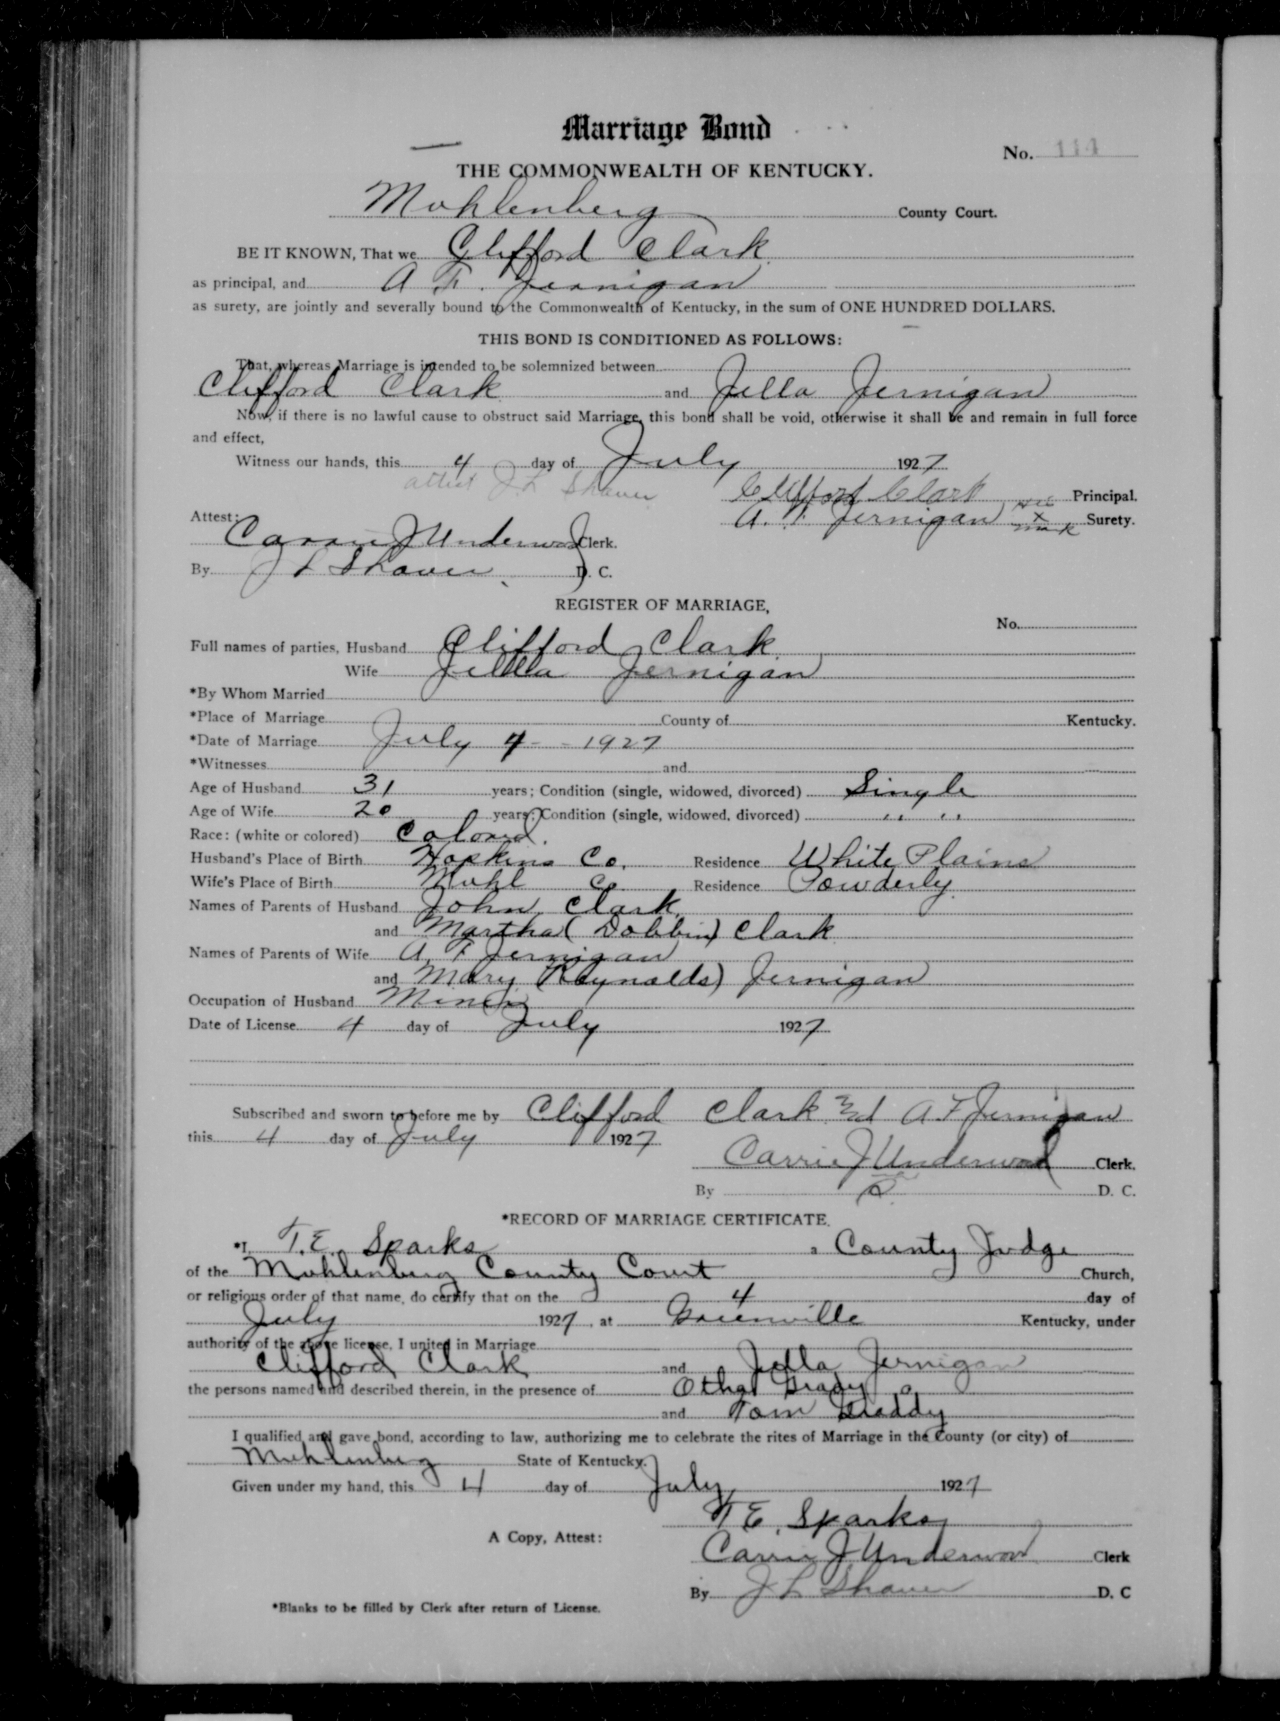 Marriage Bond
No. 114
THE COMMONWEALTH OF KENTUCKY.
Muhlenberg County Court.
BE IT KNOWN, That we Clifford Clark
as principal, and A. F. Jernigan
as surety, are jointly and severally bound to the Commonwealth of Kentucky, in the sum of ONE HUNDRED DOLLARS.
THIS BOND IS CONDITIONED AS FOLLOWS:
That, whereas Marriage is intended to be solemnized between
Clifford Clark and Jella Jernigan
Now, if there is no lawful cause to obstruct said Marriage, this bond shall be void, otherwise it shall be and remain in full force
and effect,
Witness our hands, this 4 day of July 1927
attest J L Shaver
Clifford Clark Principal.
A. F. Jernigan his x mark Surety.
Attest:
Carrie J Underwood Clerk.
By J L Shaver D. C.
REGISTER OF MARRIAGE,
No.
Full names of parties, Husband Clifford Clark
Wife Jella Jernigan
*By Whom Married
*Place of Marriage County of Kentucky.
*Date of Marriage July 4 - 1927
*Witnesses and
Age of Husband 31 years; Condition (single, widowed, divorced) Single
Age of Wife 20 years; Condition (single, widowed, divorced) " "
Race: (white or colored) Colored.
Husband's Place of Birth Hopkins Co. Residence White Plains
Wife's Place of Birth Muhl Co Residence Powderly
Names of Parents of Husband John Clark
and Martha (Dobbin) Clark
Names of Parents of Wife A. F Jernigan
and Mary (Reynolds) Jernigan
Occupation of Husband Miner
Date of License 4 day of July 1927
Subscribed and sworn to before me by Clifford Clark and A F Jernigan
this 4 day of July 1927
Carrie J Underwood Clerk.
By D. C.
*RECORD OF MARRIAGE CERTIFICATE.
*I, T. E. Sparks a County Judge
of the Muhlenberg County Court Church,
or religious order of that name, do certify that on the 4 day of
July 1927, at Greenville Kentucky, under
authority of the above license, I united in Marriage
Clifford Clark and Jella Jernigan
the persons named and described therein, in the presence of Otha Grady
and Tom Graddy
I qualified and gave bond, according to law, authorizing me to celebrate the rites of Marriage in the County (or city) of
Muhlenberg State of Kentucky.
Given under my hand, this 4 day of July 1927
T. E. Sparks
A Copy, Attest:
Carrie J Underwood Clerk
By J L Shaver D. C
*Blanks to be filled by Clerk after return of License.